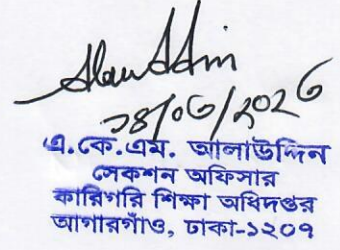 Alauddin
১৪/০৬/২০২৬
এ.কে.এম. আলাউদ্দিন
সেকশন অফিসার
কারিগরি শিক্ষা অধিদপ্তর
আগারগাঁও, ঢাকা-১২০৭